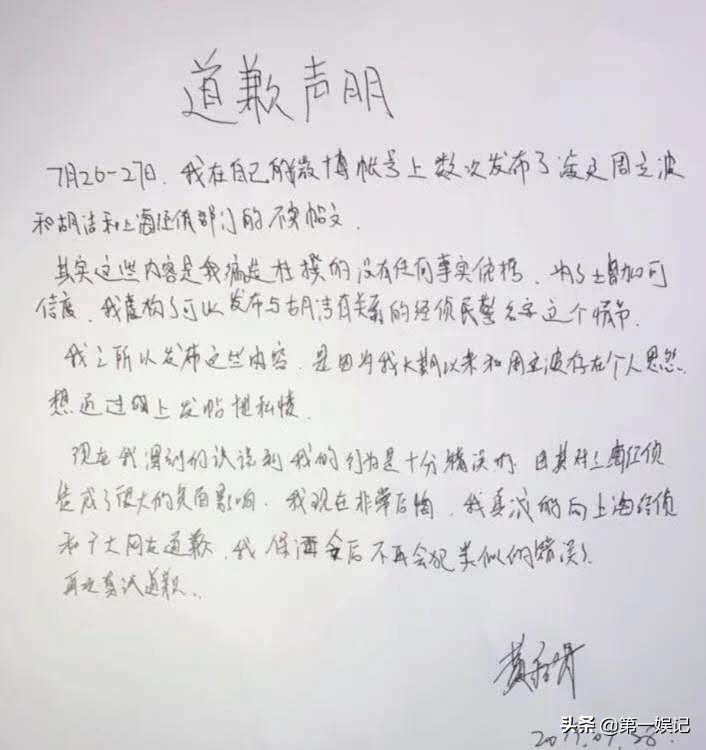 道歉声明
7月26-27日，我在自己的微博帐号上数次发布了涉及周立波
和胡洁和上海经侦部门的不实帖文．
其实这些内容是我编造杜撰的没有任何事实依据，为了增加可
信度，我虚构了可以发布与胡洁有关系的经侦民警名字这个情节．
我之所以发布这些内容，是因为我长期以来和周立波存在个人恩怨
想通过网上发帖泄私愤
现在我深刻的认识到我的行为是十分错误的，因其对上海经侦
造成了很大的负面影响．我现在非常后悔，我真诚的向上海经侦
和广大网友道歉，我保证今后不再会犯类似的错误
再次真诚道歉．
头条 @第一娱记